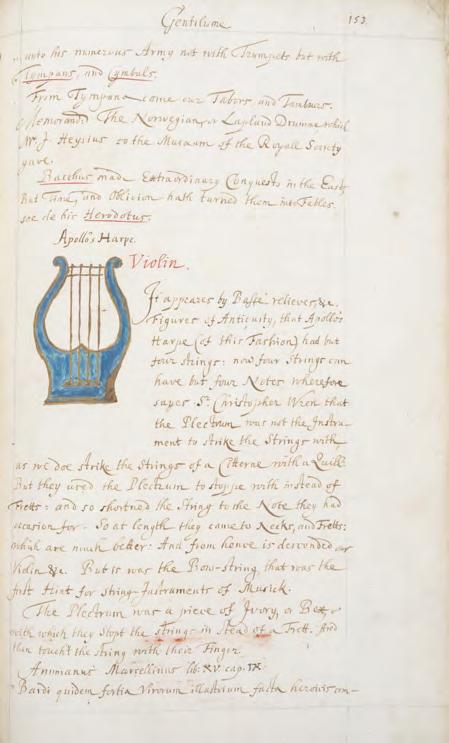 Gentilisme
153
unto his numerous Army not with Trumpets but with
Tympans, and Cymbals.
From Tympana come our Tabors, and Tamburs.
Memorand The Norwegian, or Lapland Drumme, which
Mr. J. Heysius to the Musæum of the Royall Society
gave.
Bacchus made Extraordinary Conquests in the East,
But Time, and Oblivion hath turned them into Fables
see de his Herodotus.
Apollo's Harpe.
Violin.
It appeares by Basse relieves, &c.
Figures of Antiquity, that Apollo's
Harpe (of this Fashion) had but
four strings: now four Strings can
have but four Notes wherefore
sayes Sr. Christopher Wren that
the Plectrum was not the Instru-
ment to strike the Strings with
as we doe strike the Strings of a Citterne with a Quill.
But they used the Plectrum to stoppe with instead of
Fretts: and so shortned the String to the Note they had
occasion for. So at length they came to Necks, and Fretts;
which are much better: And from hence is descended our
Violin &c. But it was the Bow-string that was the
first Hint for string-Instruments of Musick.
The Plectrum was a piece of Ivory, or
with which they stopt the strings in stead of a Frett. And
then toucht the string with their Finger
Ammianus Marcellinus lib: XV. cap. IX.
Bardi quidem fortia Virorum illustrium facta heroicis com-